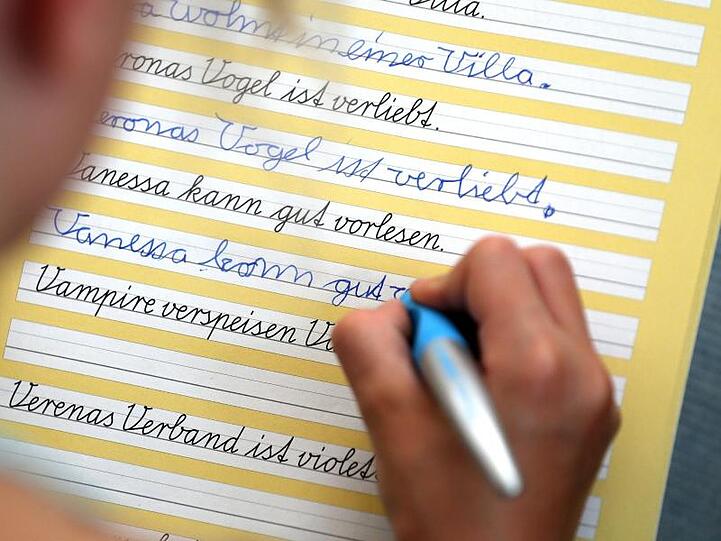 Villa.
wohnt in einer Villa.
Vogel ist verliebt.
Vogel ist verliebt.
Vanessa kann gut vorlesen.
Vanessa kann gut
Vampire verspeisen
Verenas Verband ist violet